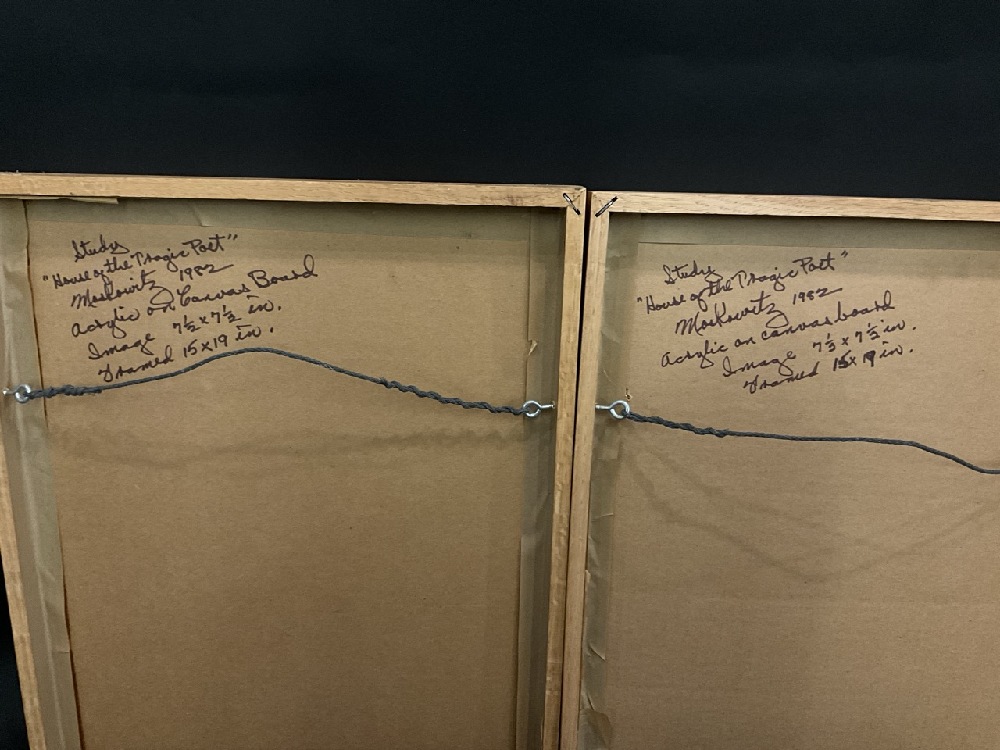 Study
"House of the Tragic Poet"
Moskowitz 1982
Acrylic on Canvas Board
Image 7½ x 7½ in.
Framed 15 x 19 in.
Study
"House of the Tragic Poet"
Moskowitz 1982
Acrylic on canvas board
Image 7½ x 7½ in.
Framed 15 x 19 in.